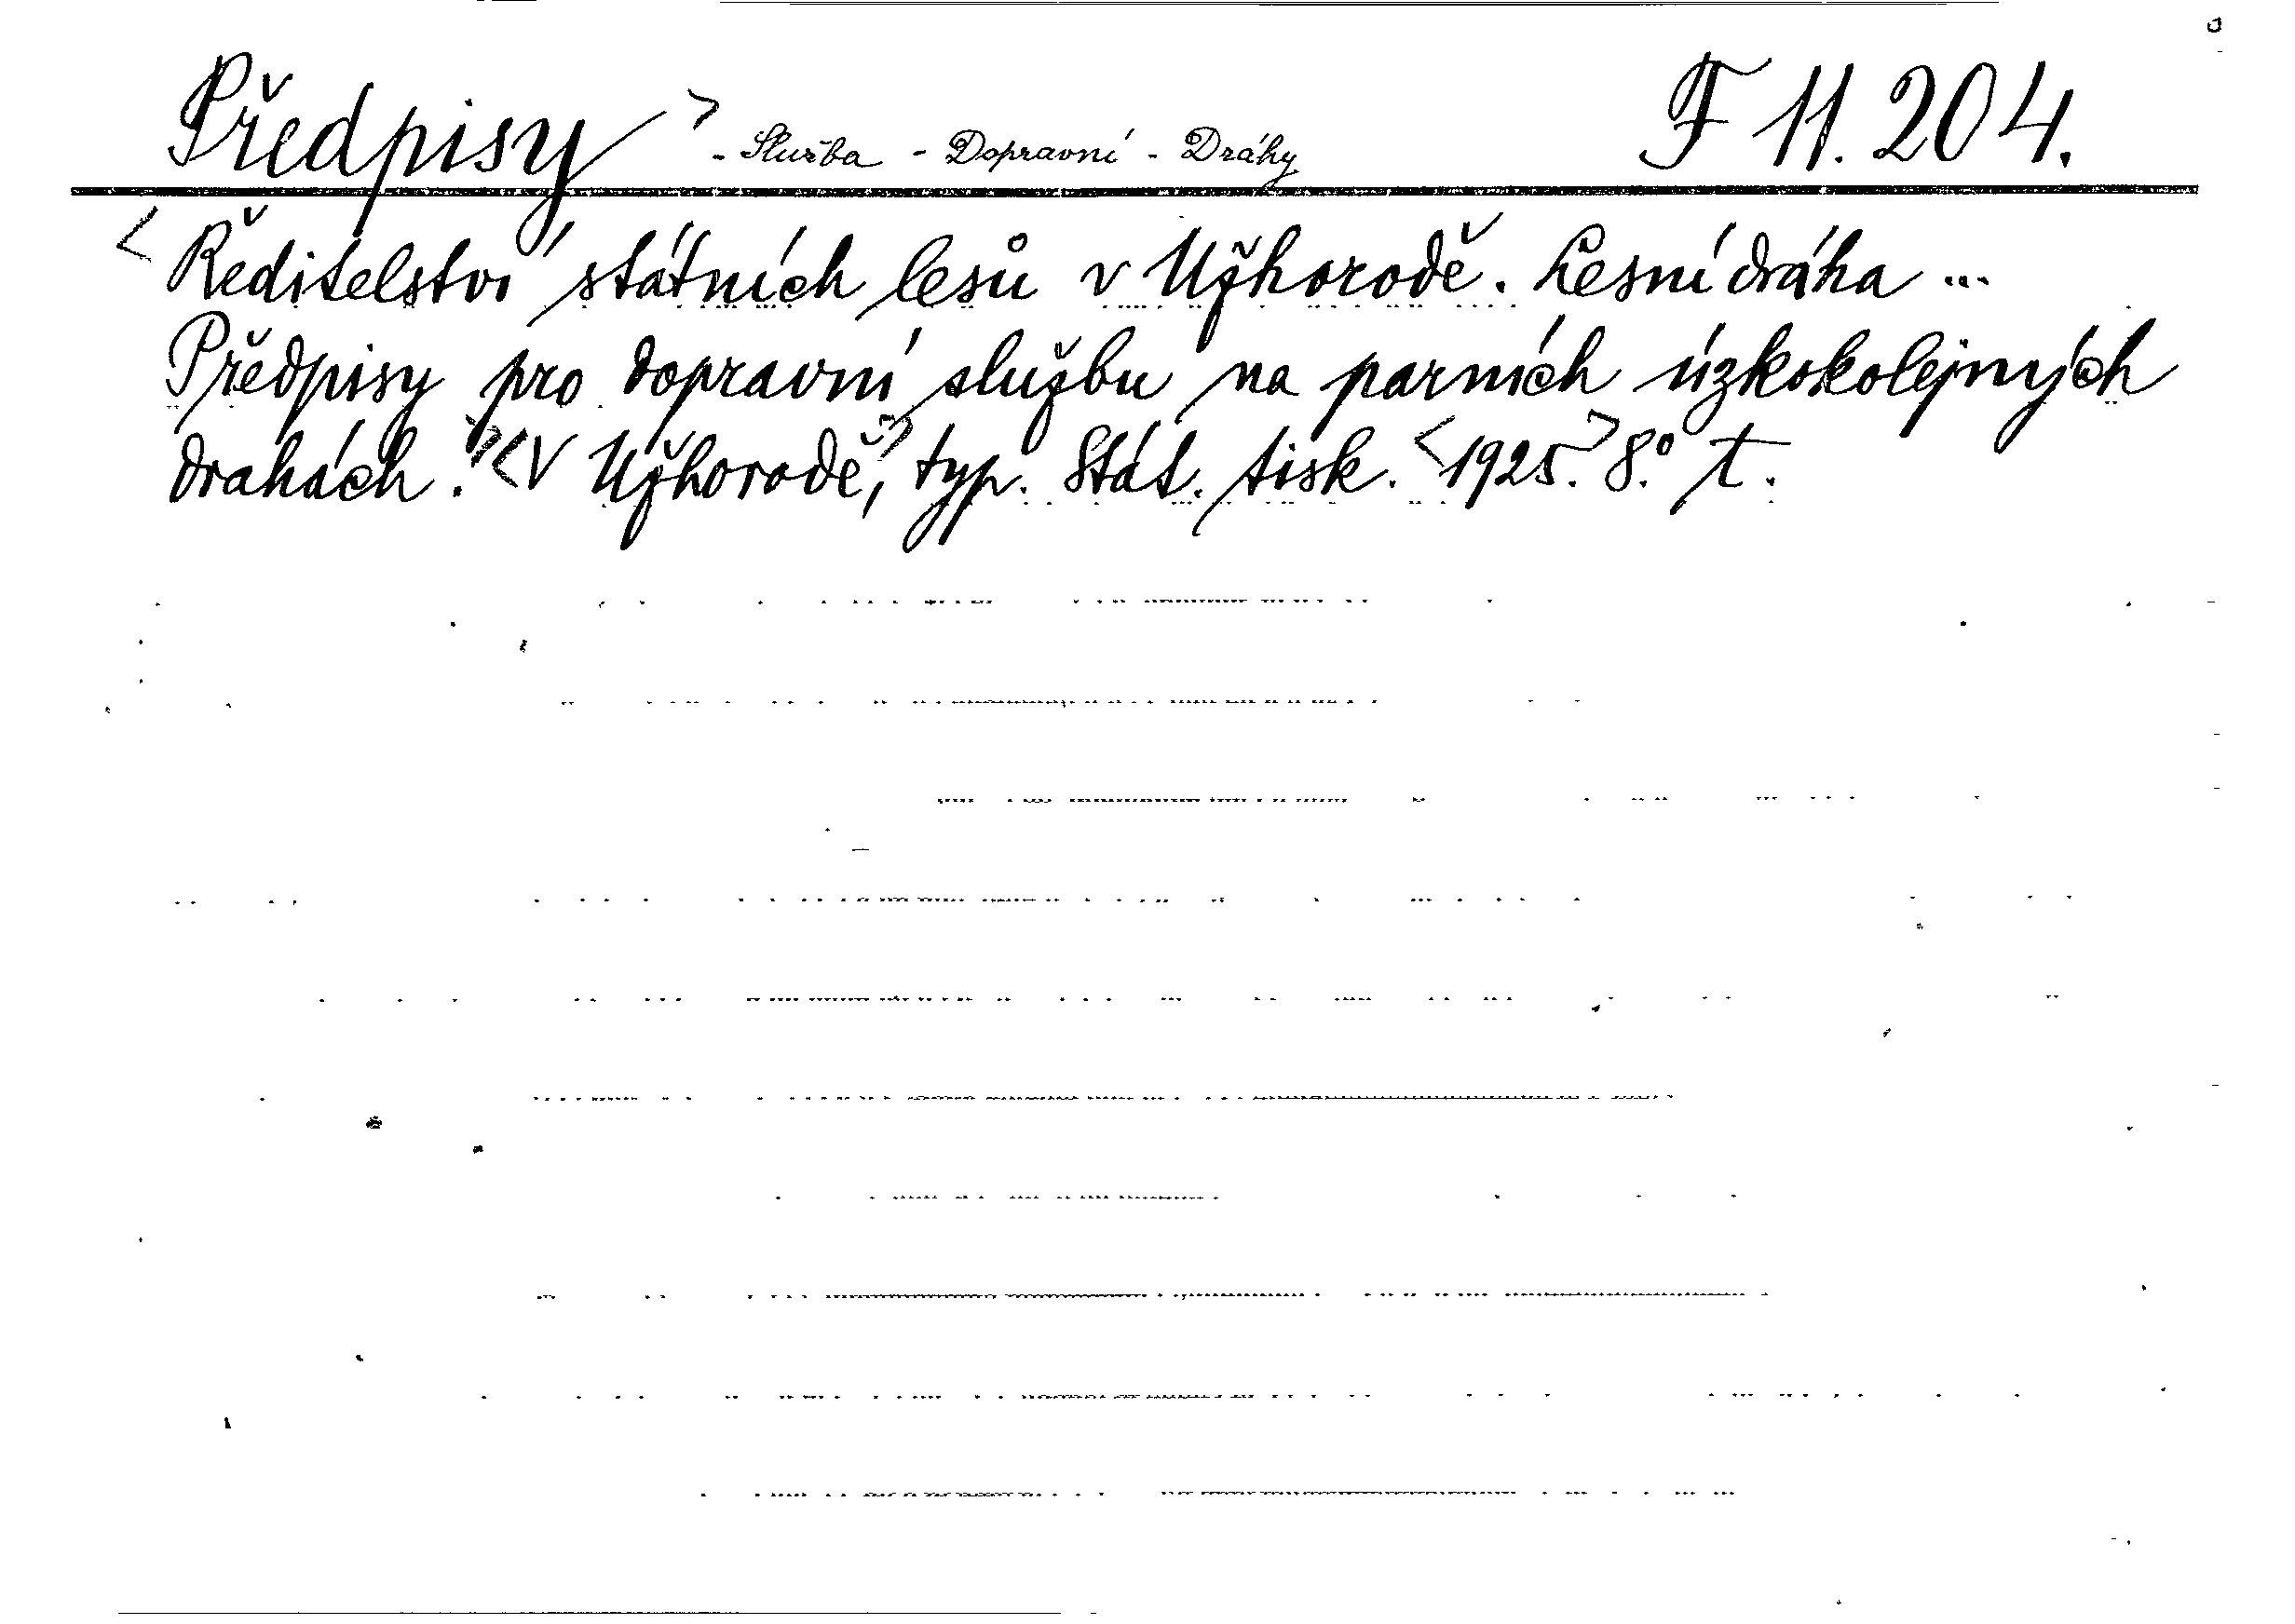 Předpisy> - Služba - Dopravní - Dráhy F 11.204.
<Ředitelství státních lesů v Užhorodě. Lesní dráha ...
Předpisy pro dopravní službu na parních úzkokolejných
drahách.><V Užhorodě,> typ. Stát. tisk. <1925.> 8.° t.